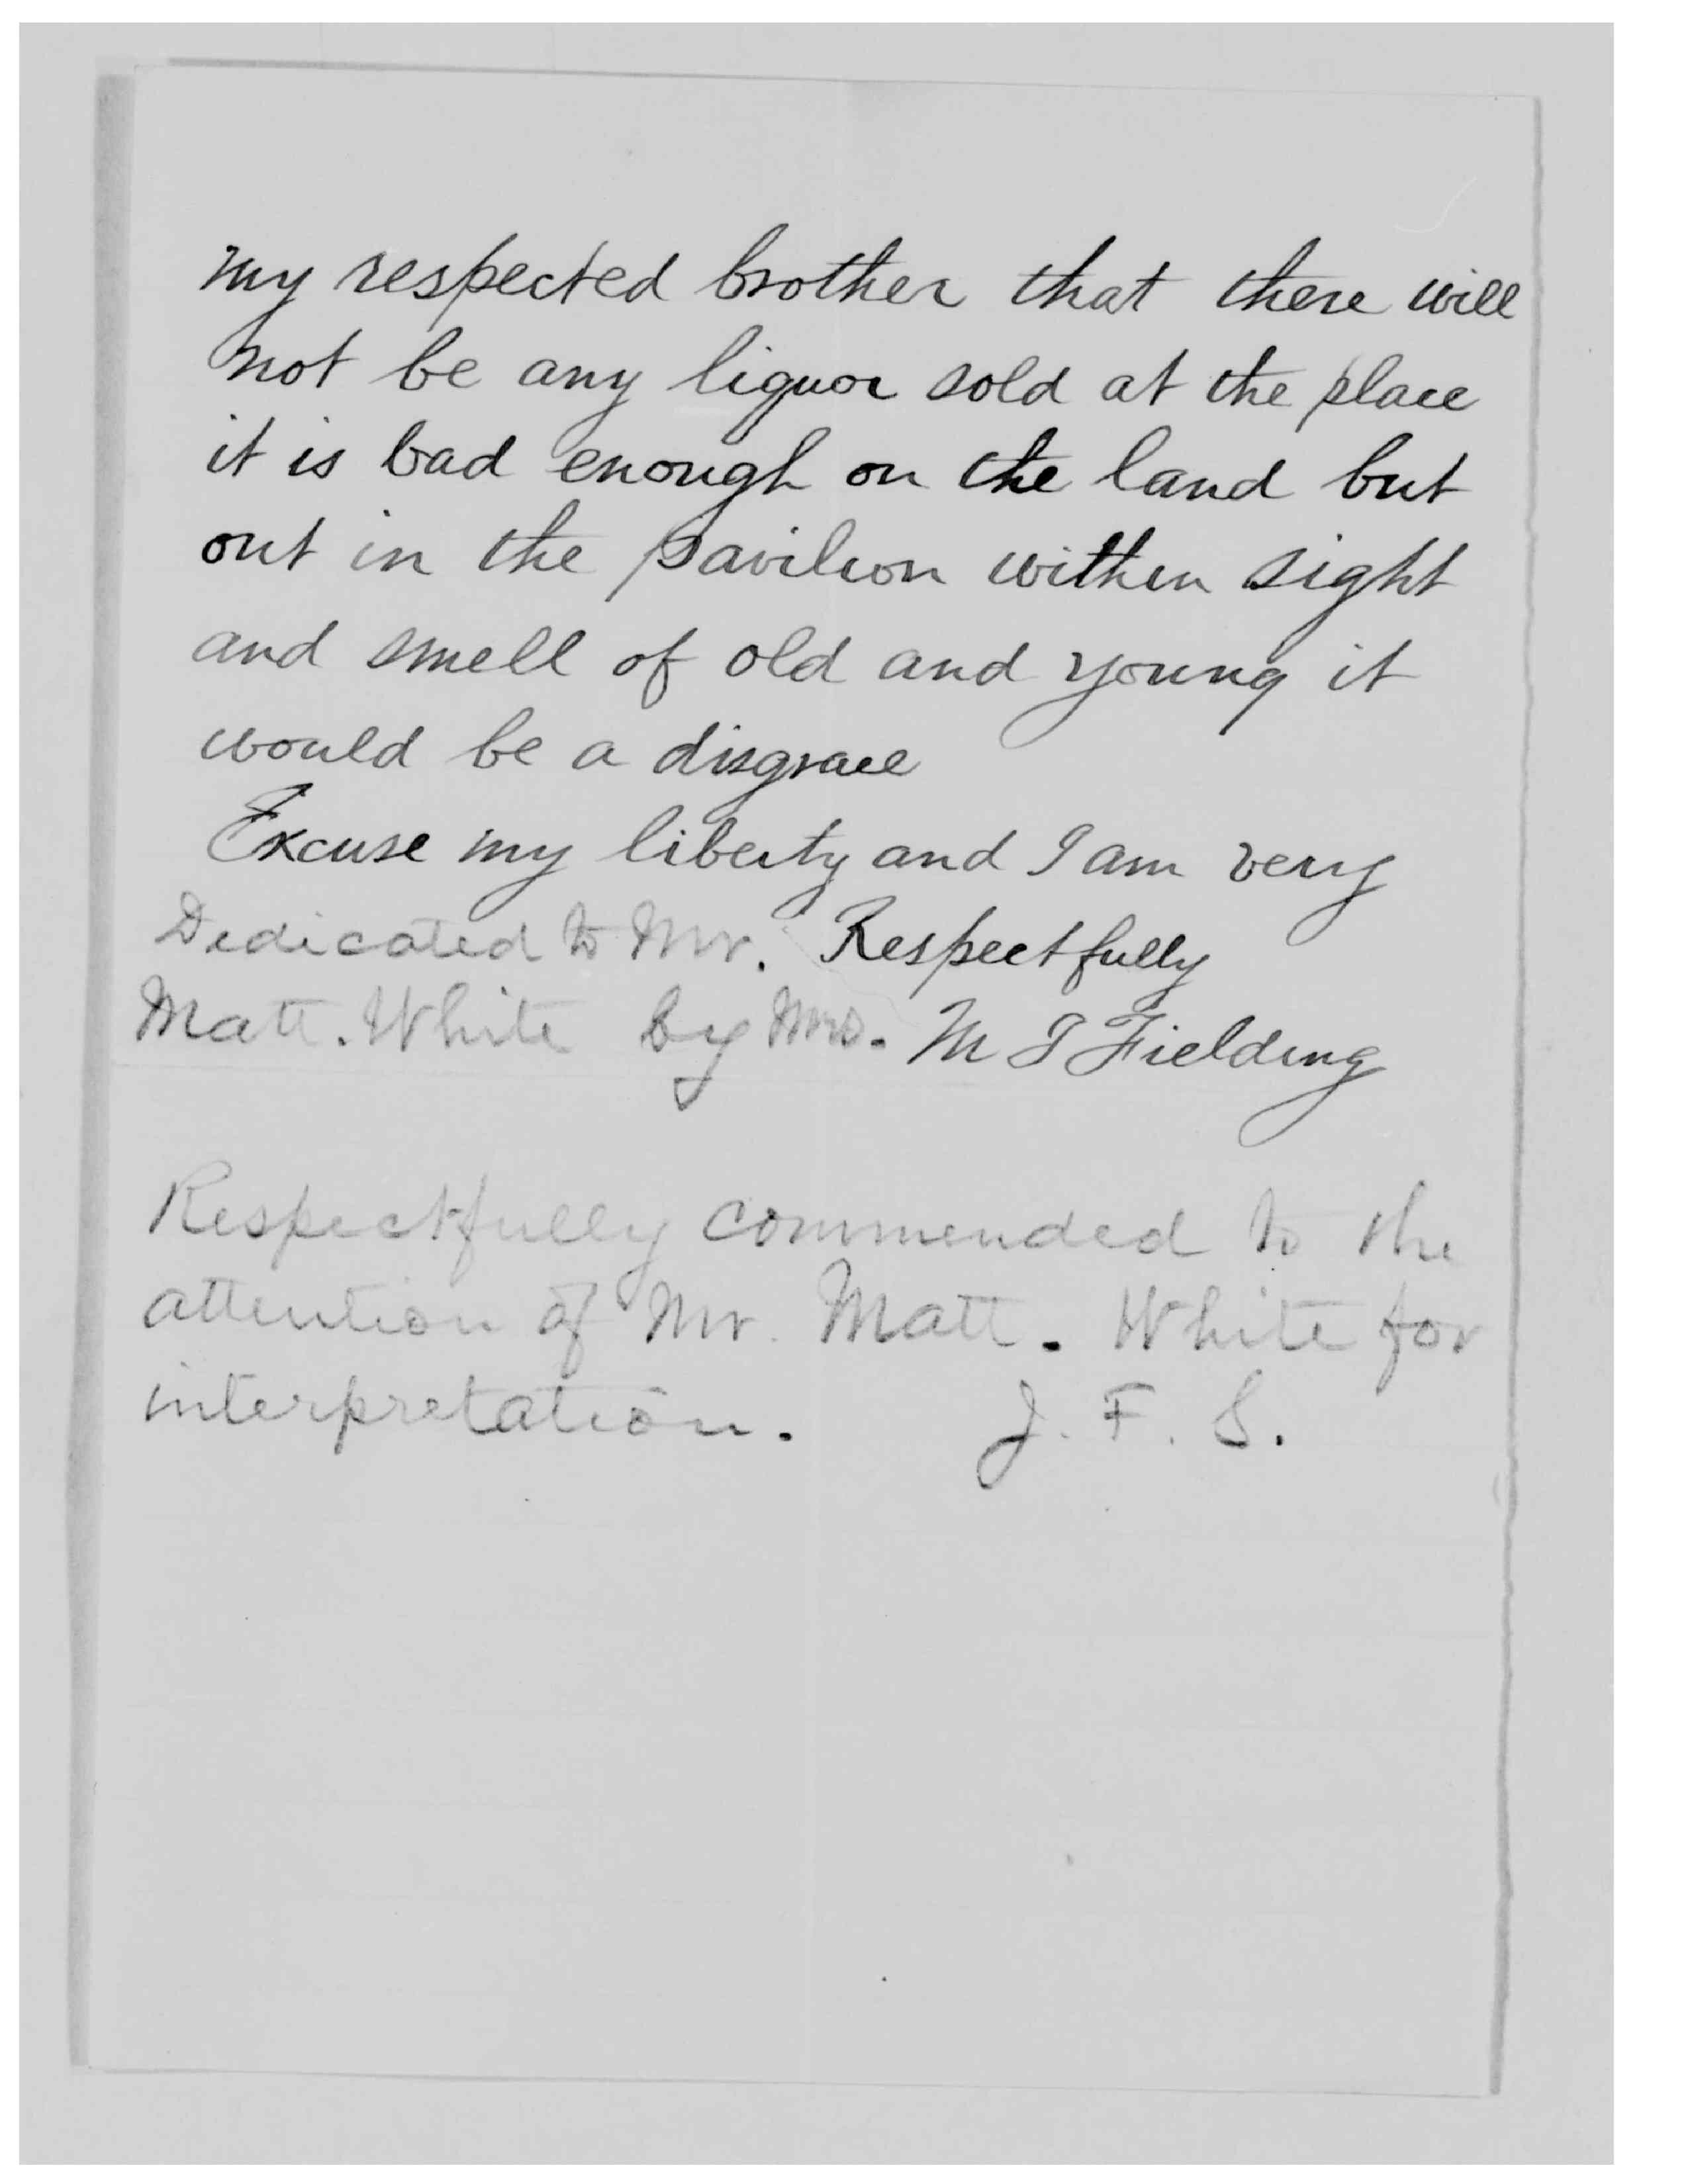 my respected brother that there will
not be any liquor sold at the place
it is bad enough on the land but
out in the pavilion within sight
and smell of old and young it
would be a disgrace
Excuse my liberty and I am very
Dedicated to Mr. Respectfully
Matt. White by Mrs. M J Fielding
Respectfully commended to the
attention of Mr. Matt. White for
interpretation. J. F. S.